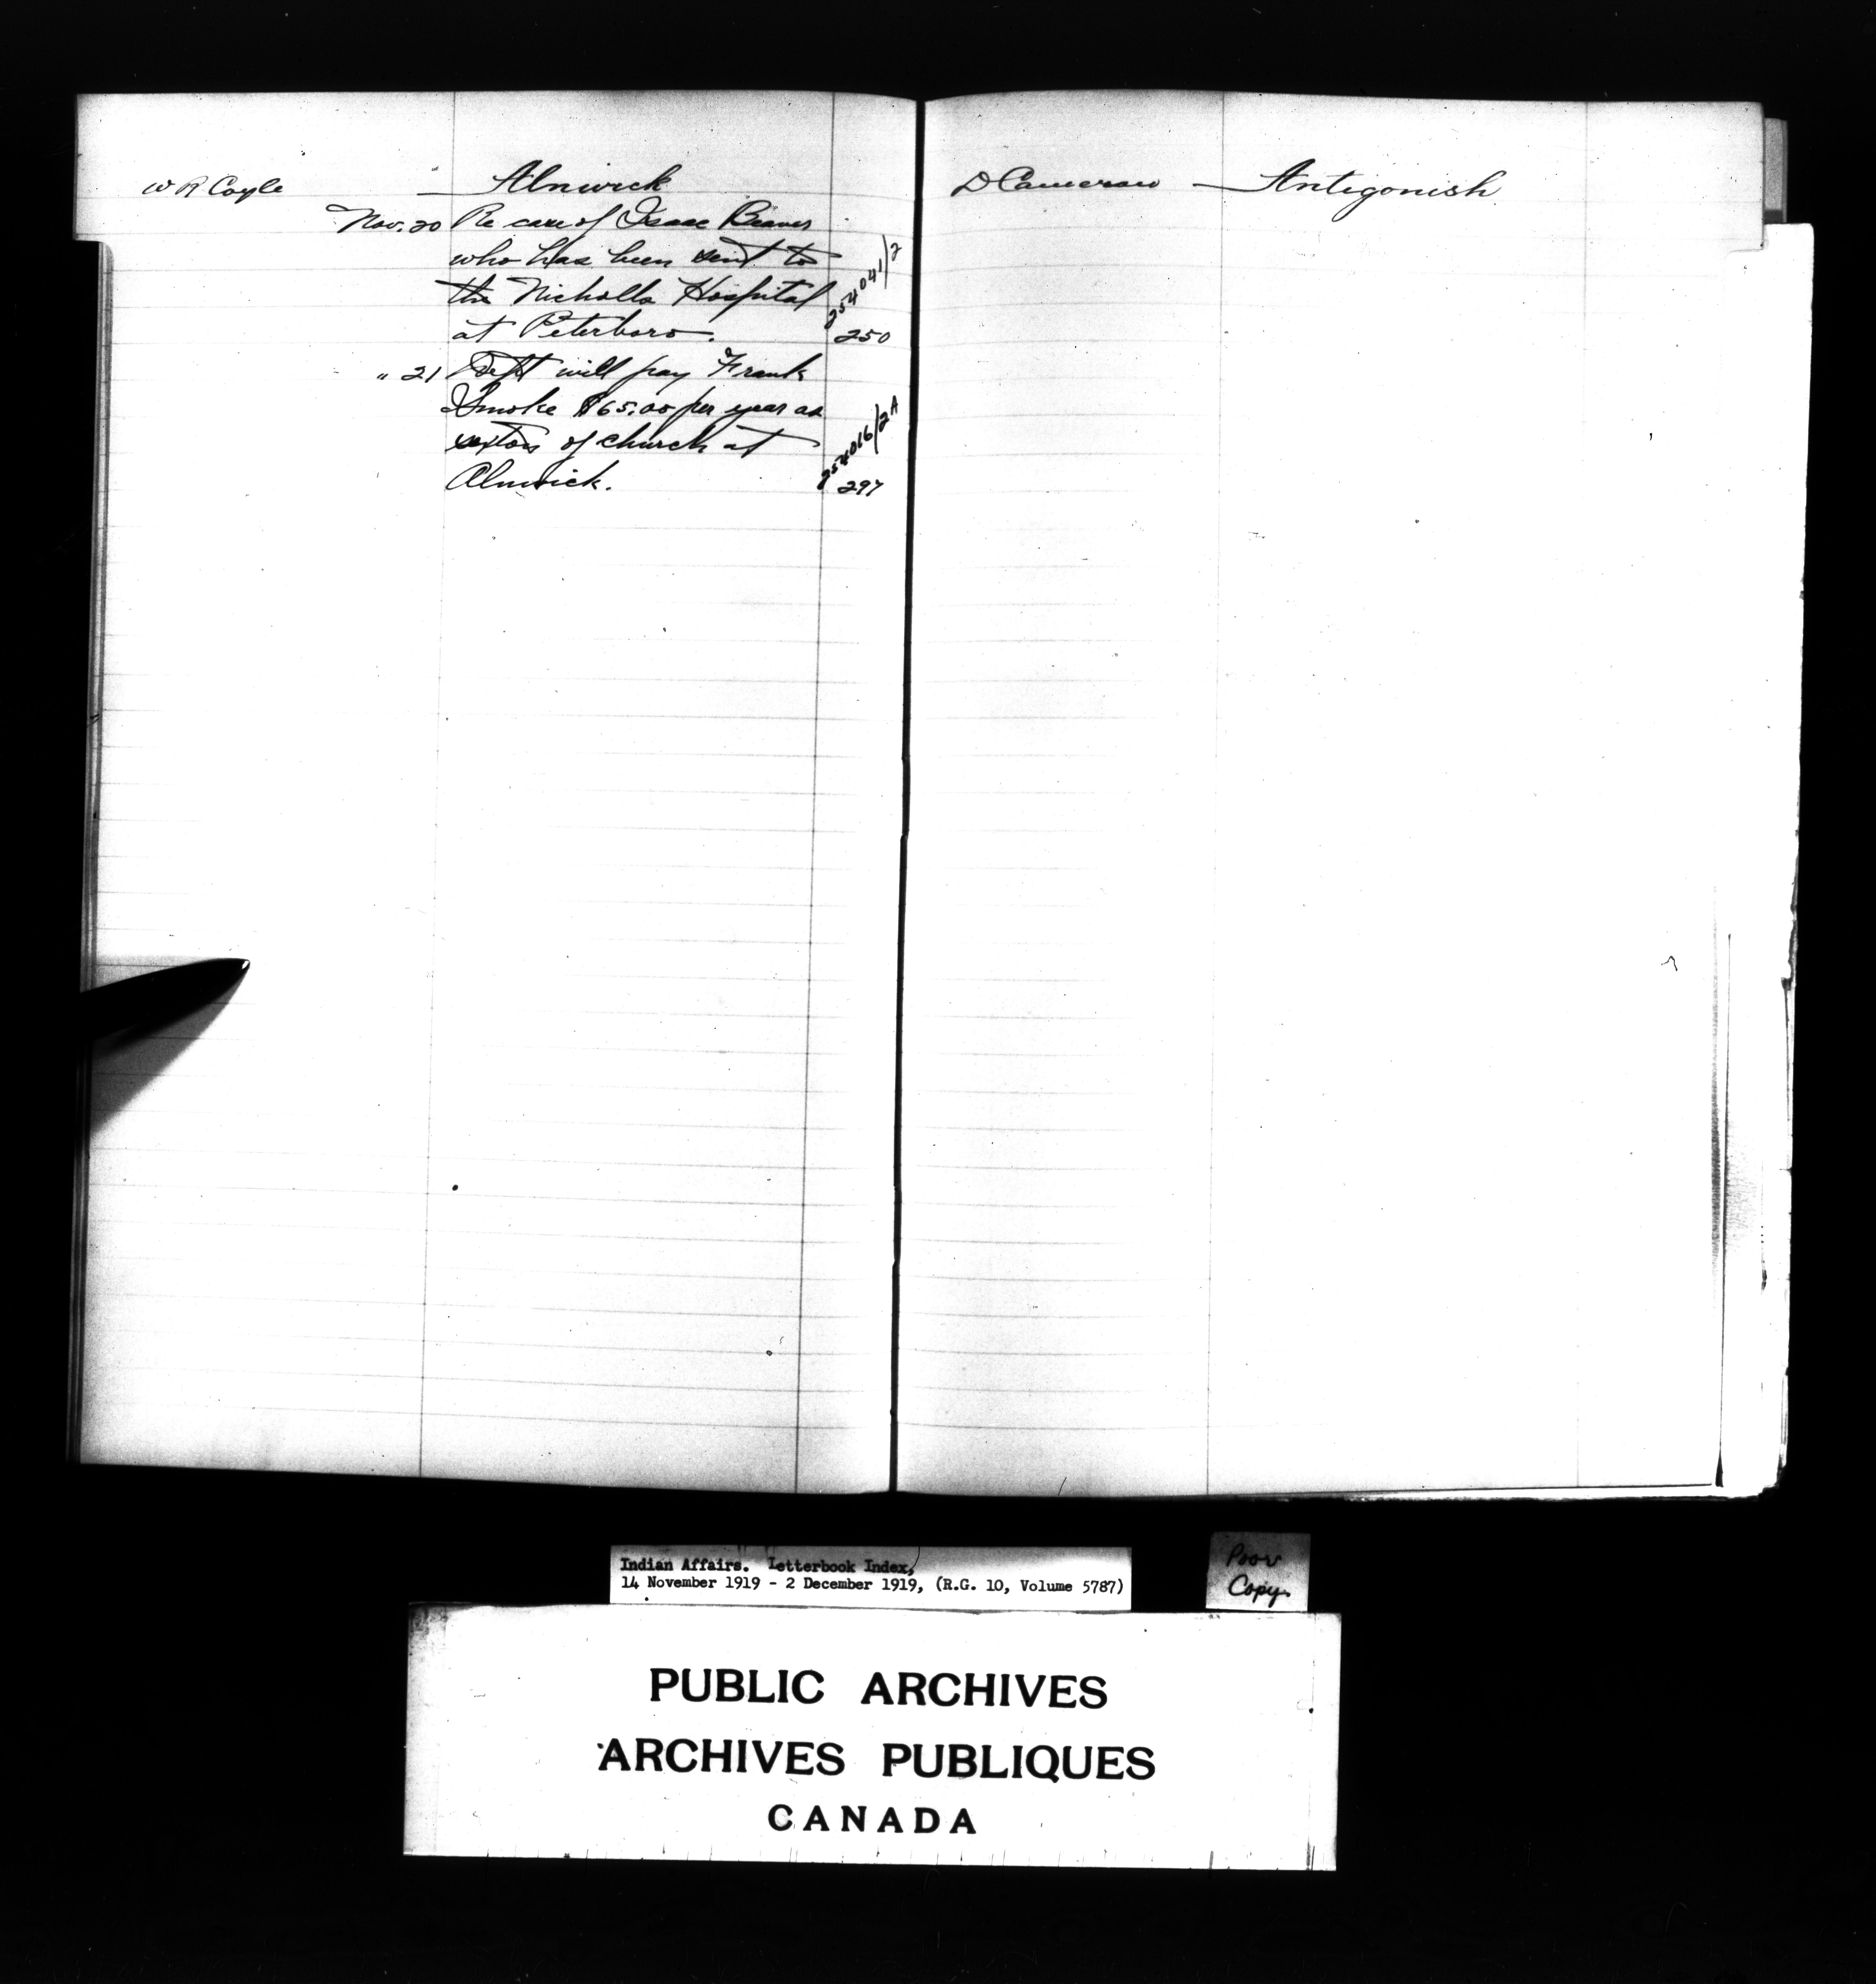 W R Coyle — Alnwick
Nov. 20 Re care of Isaac Beaver
who has been sent to
the Nicholls Hospital 254041/2
at Peterboro. 250
" 21 Dept will pay Frank
Smoke $65.00 per year as
sexton of church at 254016/2A
Alnwick. 297
D Cameron — Antigonish
Indian Affairs. Letterbook Index,
14 November 1919 - 2 December 1919, (R.G. 10, Volume 5787)
Poor
Copy.
PUBLIC ARCHIVES
ARCHIVES PUBLIQUES
CANADA